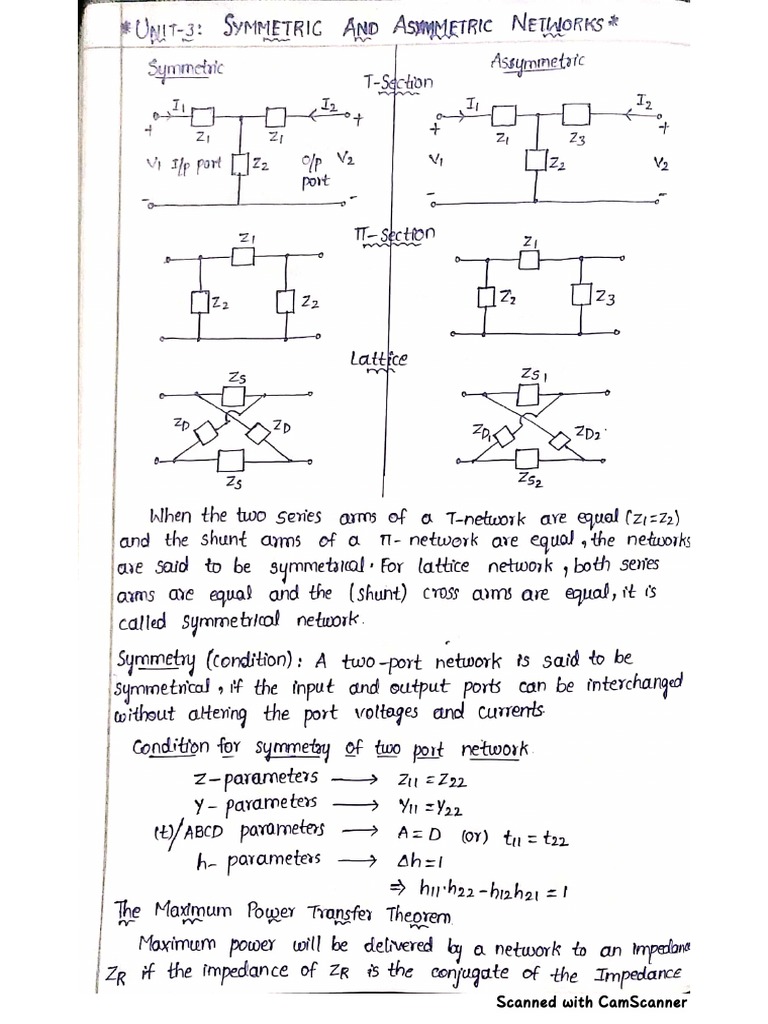 *UNIT-3: SYMMETRIC AND ASYMMETRIC NETWORKS*
Symmetric
Assymmetric
T-Section
I1 I2
Z1 Z1
+ +
V1 I/p port Z2 O/p port V2
- -
I1 I2
Z1 Z3
+ +
V1 Z2 V2
- -
π-Section
Z1
Z2 Z2
Z1
Z2 Z3
Lattice
ZS
ZD ZD
ZS
ZS1
ZD1 ZD2
ZS2
When the two series arms of a T-network are equal (Z1=Z2)
and the shunt arms of a π-network are equal, the networks
are said to be symmetrical. For lattice network, both series
arms are equal and the (shunt) cross arms are equal, it is
called symmetrical network.
Symmetry (condition): A two-port network is said to be
symmetrical, if the input and output ports can be interchanged
without altering the port voltages and currents.
Condition for symmetry of two port network.
Z-parameters → Z11 = Z22
Y-parameters → Y11 = Y22
(t)/ABCD parameters → A = D (or) t11 = t22
h-parameters → Δh=1
⇒ h11.h22-h12h21 = 1
The Maximum Power Transfer Theorem
Maximum power will be delivered by a network to an Impedanc
ZR if the impedance of ZR is the conjugate of the Impedance
Scanned with CamScanner